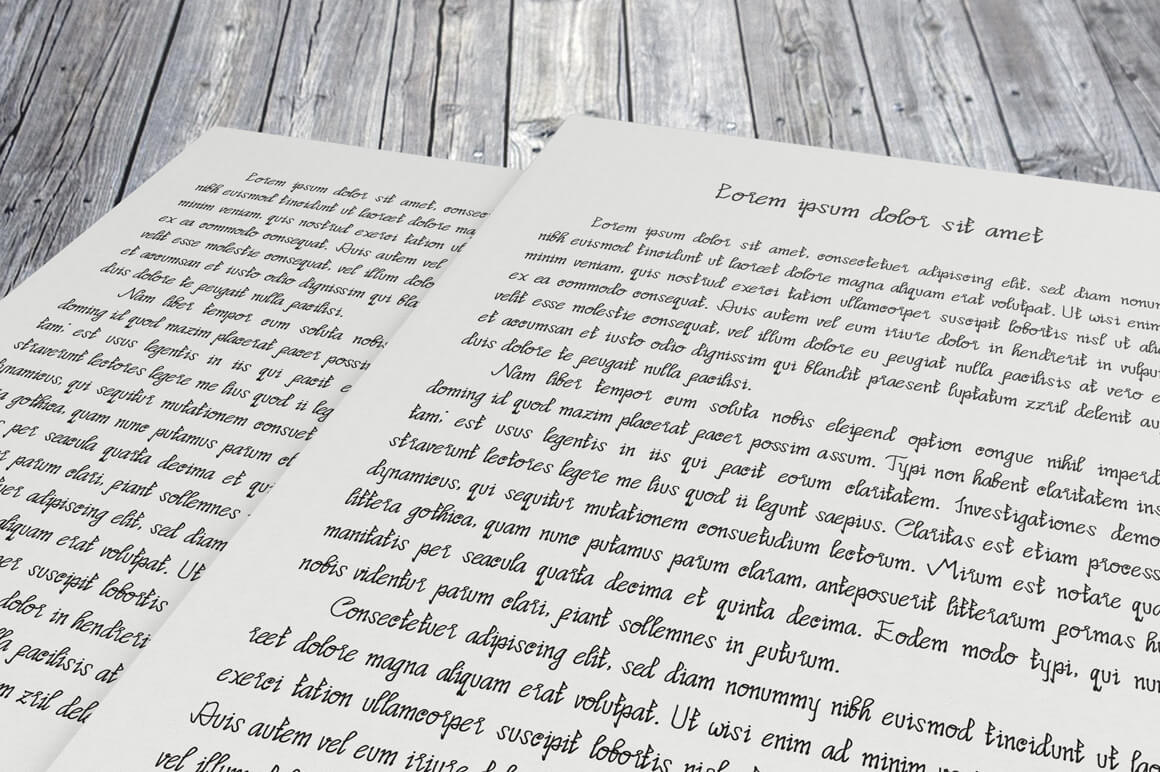 Lorem ipsum dolor sit amet, consec
nibh euismod tincidunt ut laoreet dolore ma
minim veniam, quis nostrud exerci tation ul
ex ea commodo consequat. Duis autem vel
velit esse molestie consequat, vel illum dolo
et accumsan et iusto odio dignissim qui bla
duis dolore te feugait nulla facilisi.
Nam liber tempor cum soluta nobis
doming id quod mazim placerat facer possim
tam; est usus legentis in iis qui facit e
straverunt lectores legere me lius quod ii leg
ynamicus, qui sequitur mutationem consuet
a gothica, quam nunc putamus parum cl
s per seacula quarta decima et qui
r parum clari, fiant sollemnes
uer adipiscing elit, sed diam
aliquam erat volutpat. Ut
er suscipit lobortis
dolor in hendreri
lla facilisis at
m zril dele
Lorem ipsum dolor sit amet
Lorem ipsum dolor sit amet, consectetuer adipiscing elit, sed diam nonum
nibh euismod tincidunt ut laoreet dolore magna aliquam erat volutpat. Ut wisi enim
minim veniam, quis nostrud exerci tation ullamcorper suscipit lobortis nisl ut aliq
ex ea commodo consequat. Duis autem vel eum iriure dolor in hendrerit in vulpu
velit esse molestie consequat, vel illum dolore eu feugiat nulla facilisis at vero e
et accumsan et iusto odio dignissim qui blandit praesent luptatum zzril delenit au
duis dolore te feugait nulla facilisi.
Nam liber tempor cum soluta nobis eleifend option congue nihil imperd
doming id quod mazim placerat facer possim assum. Typi non habent claritatem ins
tam; est usus legentis in iis qui facit eorum claritatem. Investigationes demo
straverunt lectores legere me lius quod ii legunt saepius. Claritas est etiam process
dynamicus, qui sequitur mutationem consuetudium lectorum. Mirum est notare qua
littera gothica, quam nunc putamus parum claram, anteposuerit litterarum formas hu
manitatis per seacula quarta decima et quinta decima. Eodem modo typi, qui nun
nobis videntur parum clari, fiant sollemnes in futurum.
Consectetuer adipiscing elit, sed diam nonummy nibh euismod tincidunt ut lao
reet dolore magna aliquam erat volutpat. Ut wisi enim ad minim
exerci tation ullamcorper suscipit lobortis nisl
Duis autem vel eum iriure
vel illum